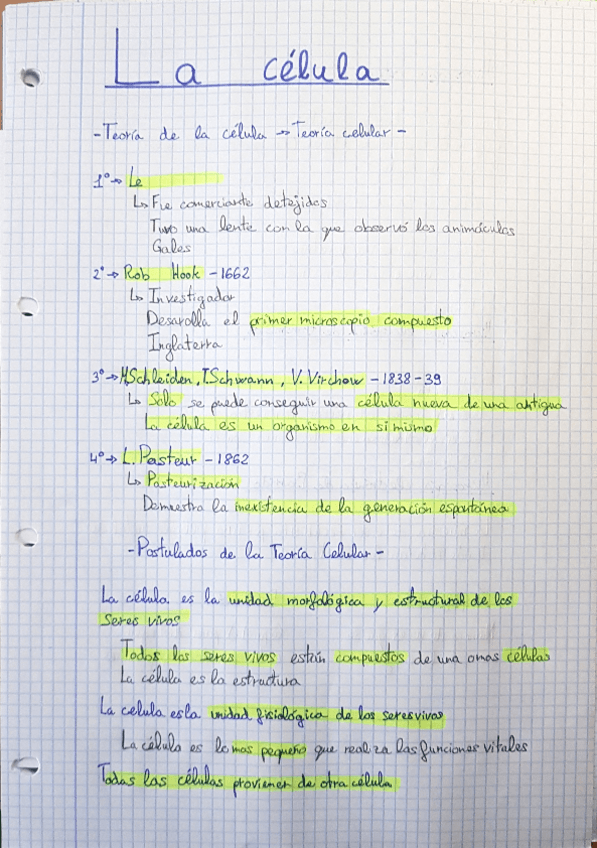 La célula
- Teoría de la célula → Teoría celular -
1º → Le
↳ Fue comerciante detejidos
Tuvo una lente con la que observó los animáculas
Gales
2º → Rob Hook - 1662
↳ Investigador
Desarolla el primer microscopio compuesto
Inglaterra
3º → M,Schleiden, T.Schwann, V. Virchow - 1838-39
↳ Sólo se puede conseguir una célula nueva de una antigua
La célula es un organismo en si mismo
4º → L. Pasteur - 1862
↳ Pasteurización
Demuestra la inexistencia de la generación espontánea
- Postulados de la Teoría Celular -
La célula es la unidad morfológica y estructural de los
seres vivos
Todos los seres vivos están compuestos de una o mas células
La célula es la estructura
La celula es la unidad fisiológica de los seres vivos
La célula es lo mas pequeño que realiza las funciones vitales
Todas las células provienen de otra célula